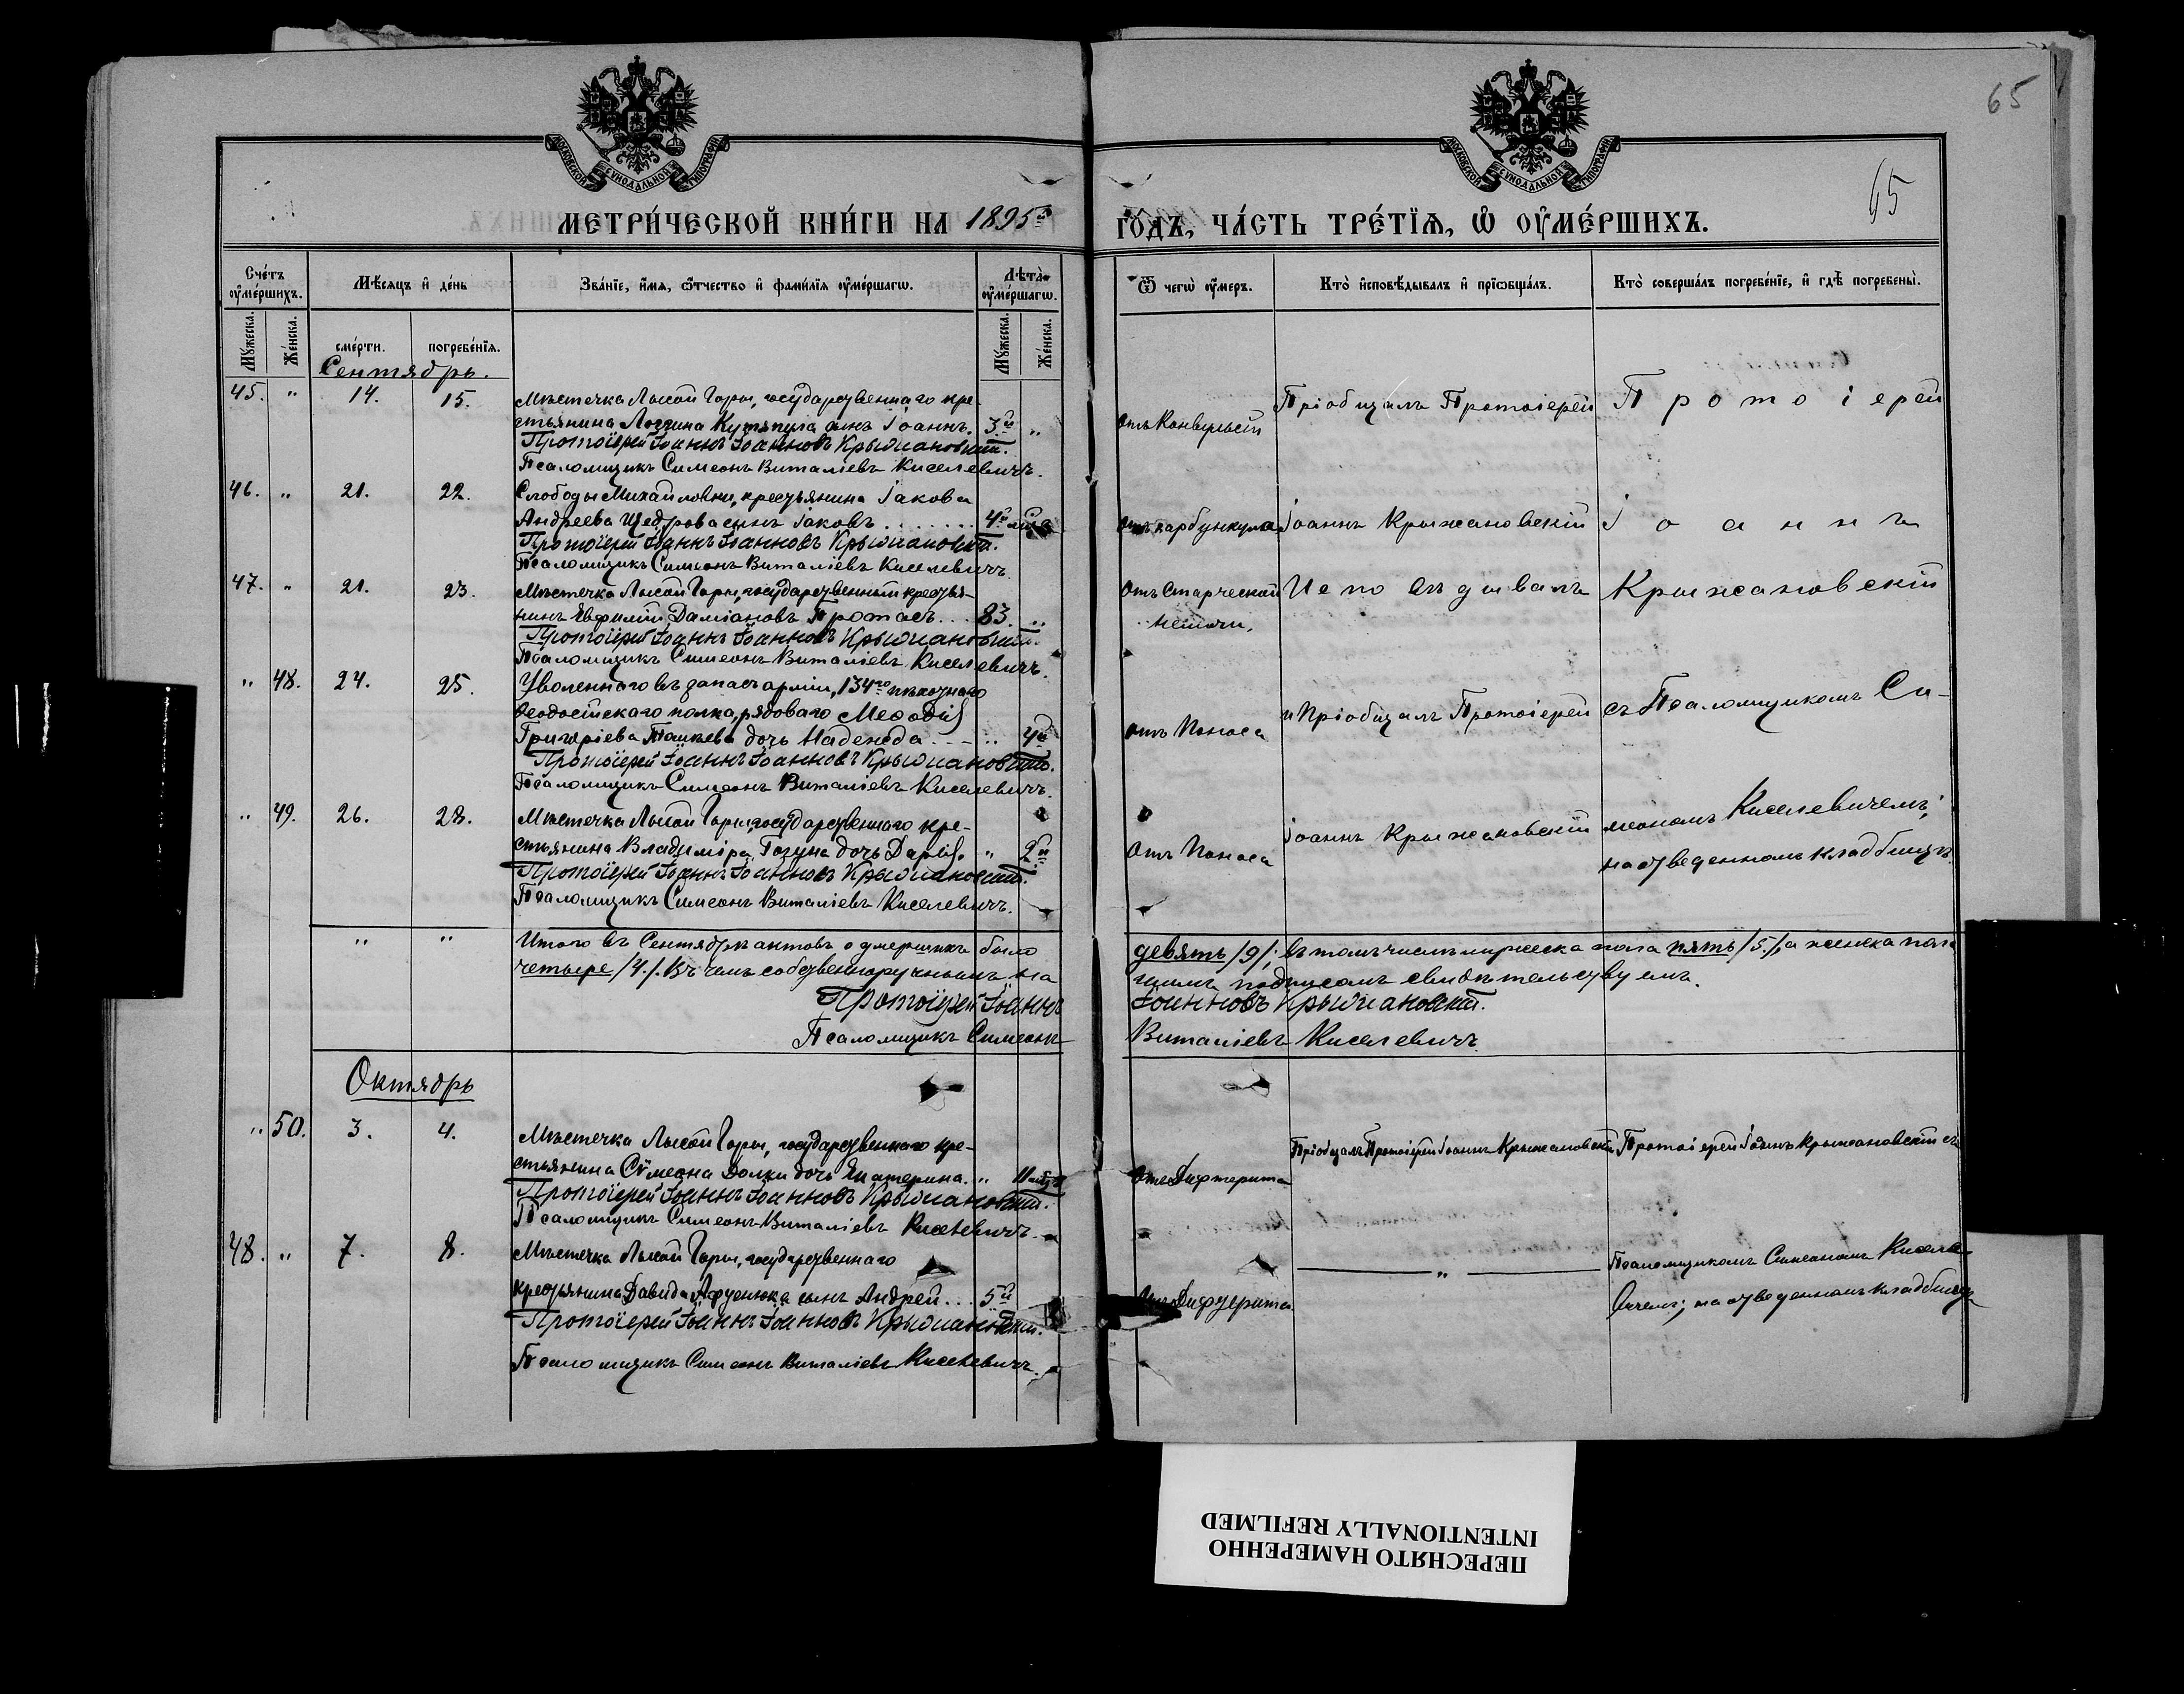 65
65
МОСКОВСКОЙ СѴНОДАЛЬНОЙ ТИПОГРАФІИ
МОСКОВСКОЙ СѴНОДАЛЬНОЙ ТИПОГРАФІИ
МЕТРИ́ЧЕСКОЙ КНИ́ГИ НА 1895й ГОДЪ, ЧА́СТЬ ТРЕ́ТЇѦ, Ѡ ОУ҆МЕ́РШИХЪ.
Сче́тъ оу҆ме́ршихъ.
Мѣсяцъ и҆ де́нь
Зва́нїе, и҆́мя, ѻ҆́тчество и҆ фами́лїя оу҆ме́ршагѡ.
Лѣта̀ оу҆ме́ршагѡ.
Ѿ чегѡ̀ оу҆́меръ.
Кто̀ и҆сповѣ́дывалъ и҆ прїѡбща́лъ.
Кто̀ соверша́лъ погребе́нїе, и҆ гдѣ̀ погребены̀.
Мꙋ́жеска. Же́нска.
сме́рти. погребе́нїя.
Мꙋ́жеска. Же́нска.
Сентябрь.
45. „ 14. 15. Мѣстечка Лысой Горы, государственнаго кре-
стьянина Логгина сынъ Іоаннъ. 3й „
Протоіерей Іоаннъ Іоанновъ Крыжановскій.
Псаломщикъ Симеонъ Виталіевъ Киселевичъ.
Отъ Конвульсій
Пріобщалъ Протоіерей
Протоіерей
46. „ 21. 22. Слободы Михайловки, крестьянина Іакова
Андреева Щедрова сынъ Іаковъ . . . . . . . 4й
Протоіерей Іоаннъ Іоанновъ Крыжановскій.
Псаломщикъ Симеонъ Виталіевъ Киселевичъ.
Отъ карбункула
Іоаннъ Крыжановскій
Іоаннъ
47. „ 21. 23. Мѣстечка Лысой Горы, государственный крестья-
нинъ Евфимій Даміановъ Протасъ . . . 83. „
Протоіерей Іоаннъ Іоанновъ Крыжановскій.
Псаломщикъ Симеонъ Виталіевъ Киселевичъ.
Отъ Старческой
немочи.
Исповѣдывалъ
Крыжановскій
„ 48. 24. 25. Уволеннаго въ запасъ арміи, 134го пѣхотнаго
Ѳеодосійскаго полка, рядоваго Меѳодія
Григоріева дочь Надежда . . . „
Протоіерей Іоаннъ Іоанновъ Крыжановскій.
Псаломщикъ Симеонъ Виталіевъ Киселевичъ.
Отъ Поноса
и Пріобщалъ Протоіерей
съ Псаломщикомъ Си-
„ 49. 26. 28. Мѣстечка Лысой Горы, государственнаго кре-
стьянина Владиміра дочь Дарія. „ 2й
Протоіерей Іоаннъ Іоанновъ Крыжановскій.
Псаломщикъ Симеонъ Виталіевъ Киселевичъ.
Отъ Поноса
Іоаннъ Крыжановскій
меономъ Киселевичемъ;
на отведенномъ кладбищѣ.
„ „ Итого въ Сентябрѣ актовъ о умершихъ было девять /9/; въ томъ числѣ мужеска пола пять /5/, а женска пола
четыре /4/. Въ чемъ собственноручнымъ на- шимъ подписомъ свидѣтельствуемъ.
Протоіерей Іоаннъ Іоанновъ Крыжановскій.
Псаломщикъ Симеонъ Виталіевъ Киселевичъ.
Октябрь
„ 50. 3. 4. Мѣстечка Лысой Горы, государственнаго кре-
стьянина Сѵмеона дочь Екатерина. „
Протоіерей Іоаннъ Іоанновъ Крыжановскій.
Псаломщикъ Симеонъ Виталіевъ Киселевичъ.
Отъ Дифтерита
Пріобщалъ Протоіерей Іоаннъ Крыжановскій
Протоіерей Іоаннъ Крыжановскій съ
48. „ 7. 8. Мѣстечка Лысой Горы, государственнаго
крестьянина Давида сынъ Андрей . . . 5й
Протоіерей Іоаннъ Іоанновъ Крыжановскій.
Псаломщикъ Симеонъ Виталіевъ Киселевичъ.
Отъ Дифтерита
„
Псаломщикомъ Симеономъ Киселе-
вичемъ; на отведенномъ кладбищѣ
ПЕРЕСНЯТО НАМЕРЕННО
INTENTIONALLY REFILMED